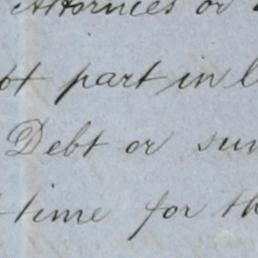 Attornies or
part in
Debt or sum
time for th